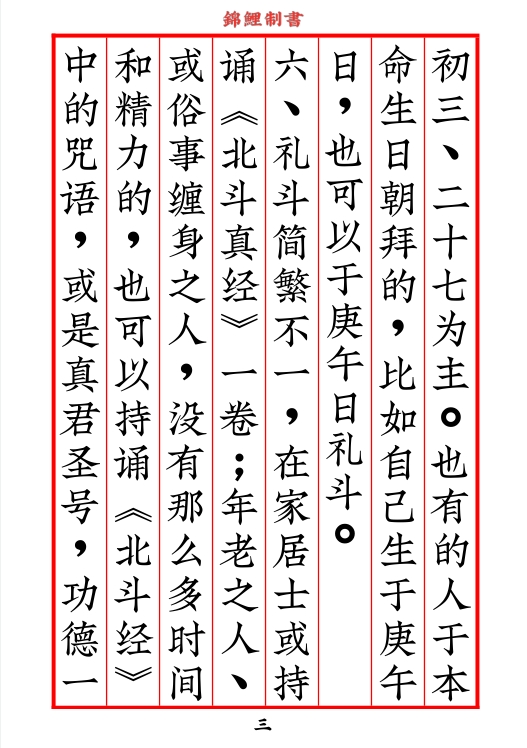 錦鯉制書
初三、二十七为主。也有的人于本
命生日朝拜的，比如自己生于庚午
日，也可以于庚午日礼斗。
六、礼斗简繁不一，在家居士或持
诵《北斗真经》一卷；年老之人、
或俗事缠身之人，没有那么多时间
和精力的，也可以持诵《北斗经》
中的咒语，或是真君圣号，功德一
三